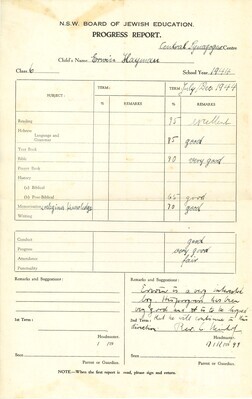 N.S.W. BOARD OF JEWISH EDUCATION.
PROGRESS REPORT.
Central Synagogue Centre
Child's Name: Erwin Hayman
Class 6 School Year 1944
TERM: TERM July/Dec. 1944
SUBJECT: % REMARKS % REMARKS
Reading 95 excellent
Hebrew
Language and Grammar 85 good
Text Book
Bible 90 very good
Prayer Book
History
(a) Biblical
(b) Post-Biblical 65 good
religious knowledge 70 good
Writing
Conduct good
Progress very good
Attendance fair
Punctuality
Remarks and Suggestions: Remarks and Suggestions:
Erwin is a very interested
boy. His progress has been
very good and it is to be hoped
that he will continue in this
direction
1st Term: 2nd Term:
Headmaster. Headmaster.
Seen Seen
Parent or Guardian. Parent or Guardian.
NOTE—When the first report is read, please sign and return.